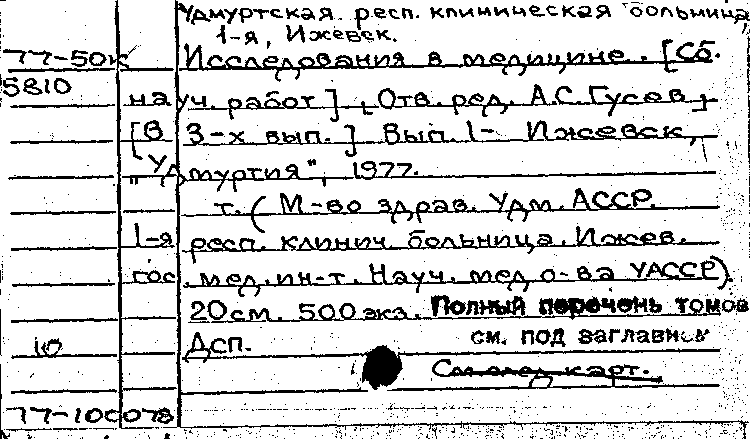 Удмуртская респ. клиническая больница,
1-я, Ижевск.
77-50к Исследования в медицине. [Сб.
5810 науч. работ], [Отв. ред. А.С. Гусев]
[В 3-х вып.] Вып. 1- Ижевск,
"Удмуртия", 1977.
т. (М-во здрав. Удм. АССР.
1-я респ. клинич. больница. Ижев.
гос. мед. ин-т. Науч. мед. о-ва УАССР).
20 см. 500 экз. Полный перечень томов
10 Дсп. см. под заглавием
См. след. карт.
77-100078